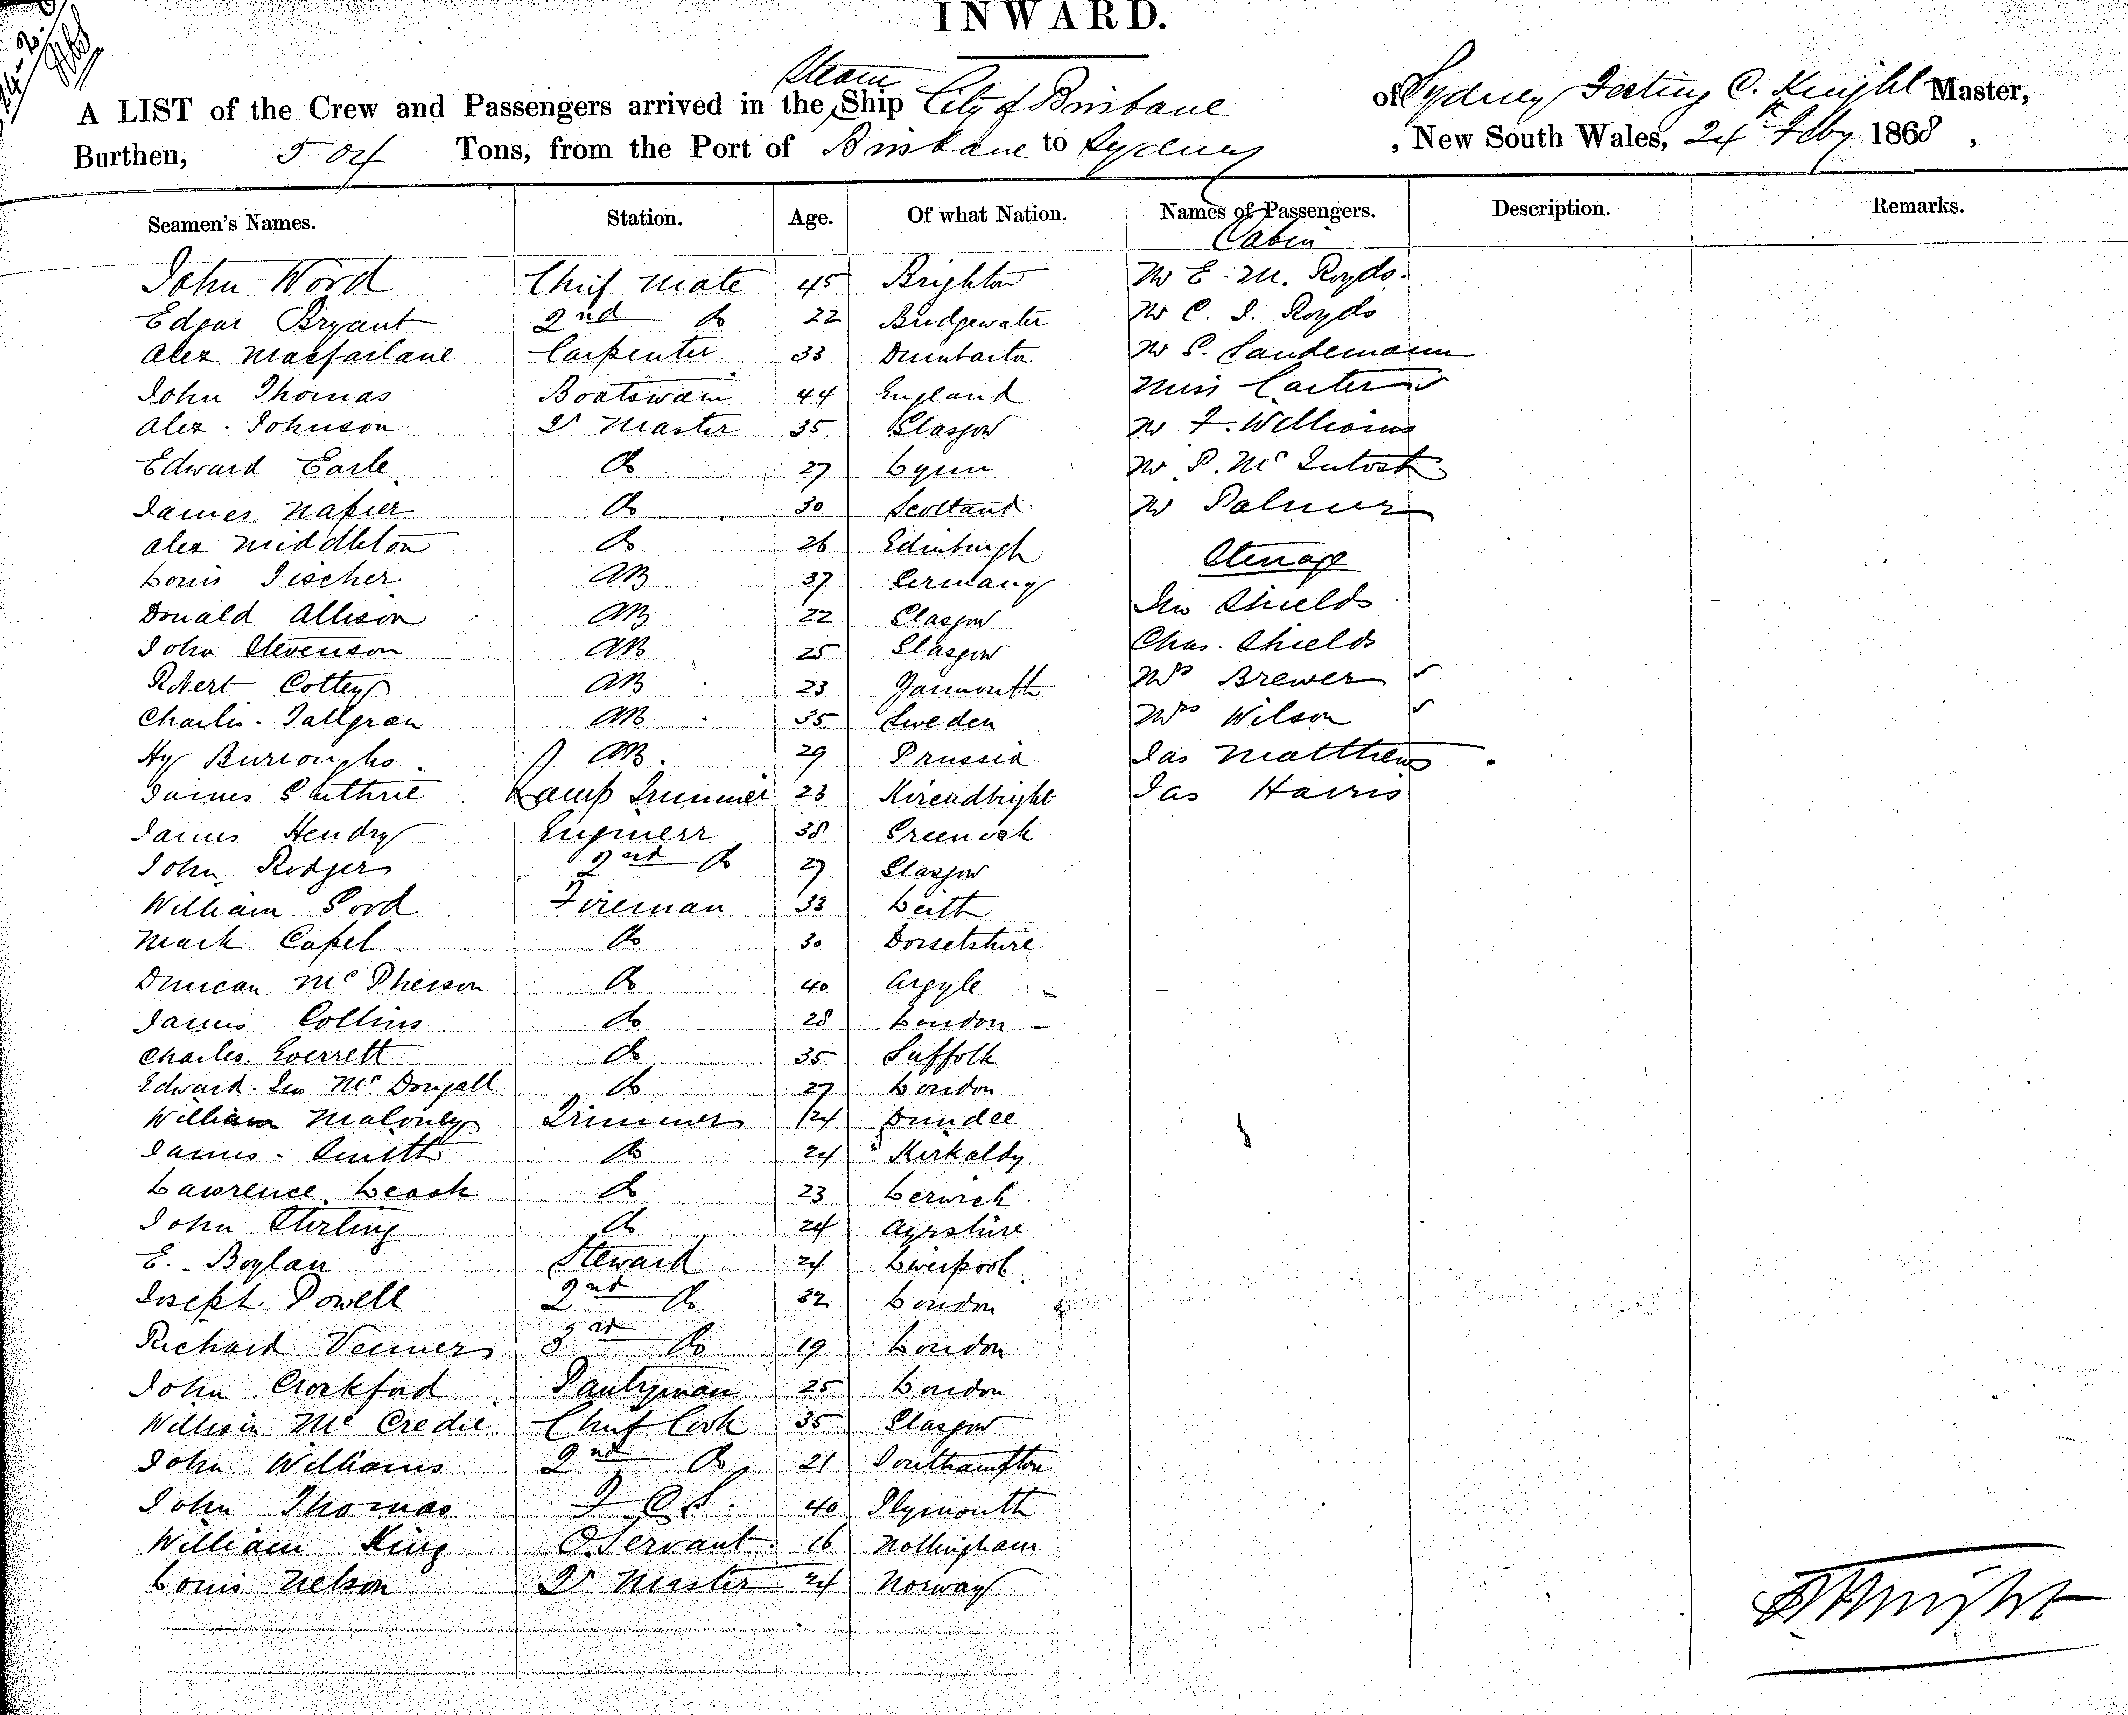 INWARD.
A LIST of the Crew and Passengers arrived in the Steam Ship City of Brisbane of Sydney C. Knight Master,
Burthen, 504 Tons, from the Port of Brisbane to Sydney, New South Wales, 24th Feby 1868,
Seamen's Names. Station. Age. Of what Nation. Names of Passengers. Description. Remarks.
Cabin
John Word Chief Mate 45 Brighton Mr E. M. Royds.
Edgar Bryant 2nd Do 22 Bridgewater Mr C. J. Royds
Alex Macfarlane Carpenter 33 Dumbarton Mr P. Sandemann
John Thomas Boatswain 44 England Miss Carter
Alex. Johnson Qr Master 35 Glasgow Mr F. Williams
Edward Earle Do 27 Lynn Mr P. McIntosh
James Napier Do 30 Scotland Mr Palmer
Alex Middleton Do 26 Edinburgh
Steerage
Louis Fischer AB 37 Germany
Donald Allison AB 22 Glasgow Jno Shields
John Stevenson AB 25 Glasgow Chas. Shields
Robert Cottey AB 23 Yarmouth Mrs Brewer
Charles Tallgran AB 35 Sweden Mrs Wilson
Hy Burroughs AB. 29 Prussia Jas Matthews
James Guthrie Lamp Trimmer 23 Kircudbright Jas Harris
James Hendry Engineer 38 Greenock
John Rodger 2nd Do 27 Glasgow
William Good Fireman 33 Leith
Mark Capel Do 30 Dorsetshire
Duncan McPherson Do 40 Argyle
James Collins Do 28 London
Charles Everrett Do 35 Suffolk
Edward Jno McDougall Do 27 London
William Maloney Trimmer 24 Dundee
James Smith Do 24 Kirkaldy
Lawrence Leask Do 23 Lerwick
John Stirling Do 24 Ayrshire
E. Boylan Steward 24 Liverpool
Joseph Powell 2nd Do 32 London
Richard Venner 3rd Do 19 London
John Crockford Pantryman 25 London
William McCredie Chief Cook 35 Glasgow
John Williams 2nd Do 21 Southampton
John Thomas 40 Plymouth
William King O. Servant 16 Nottingham
Louis Nelson Qr Master 24 Norway
Knight